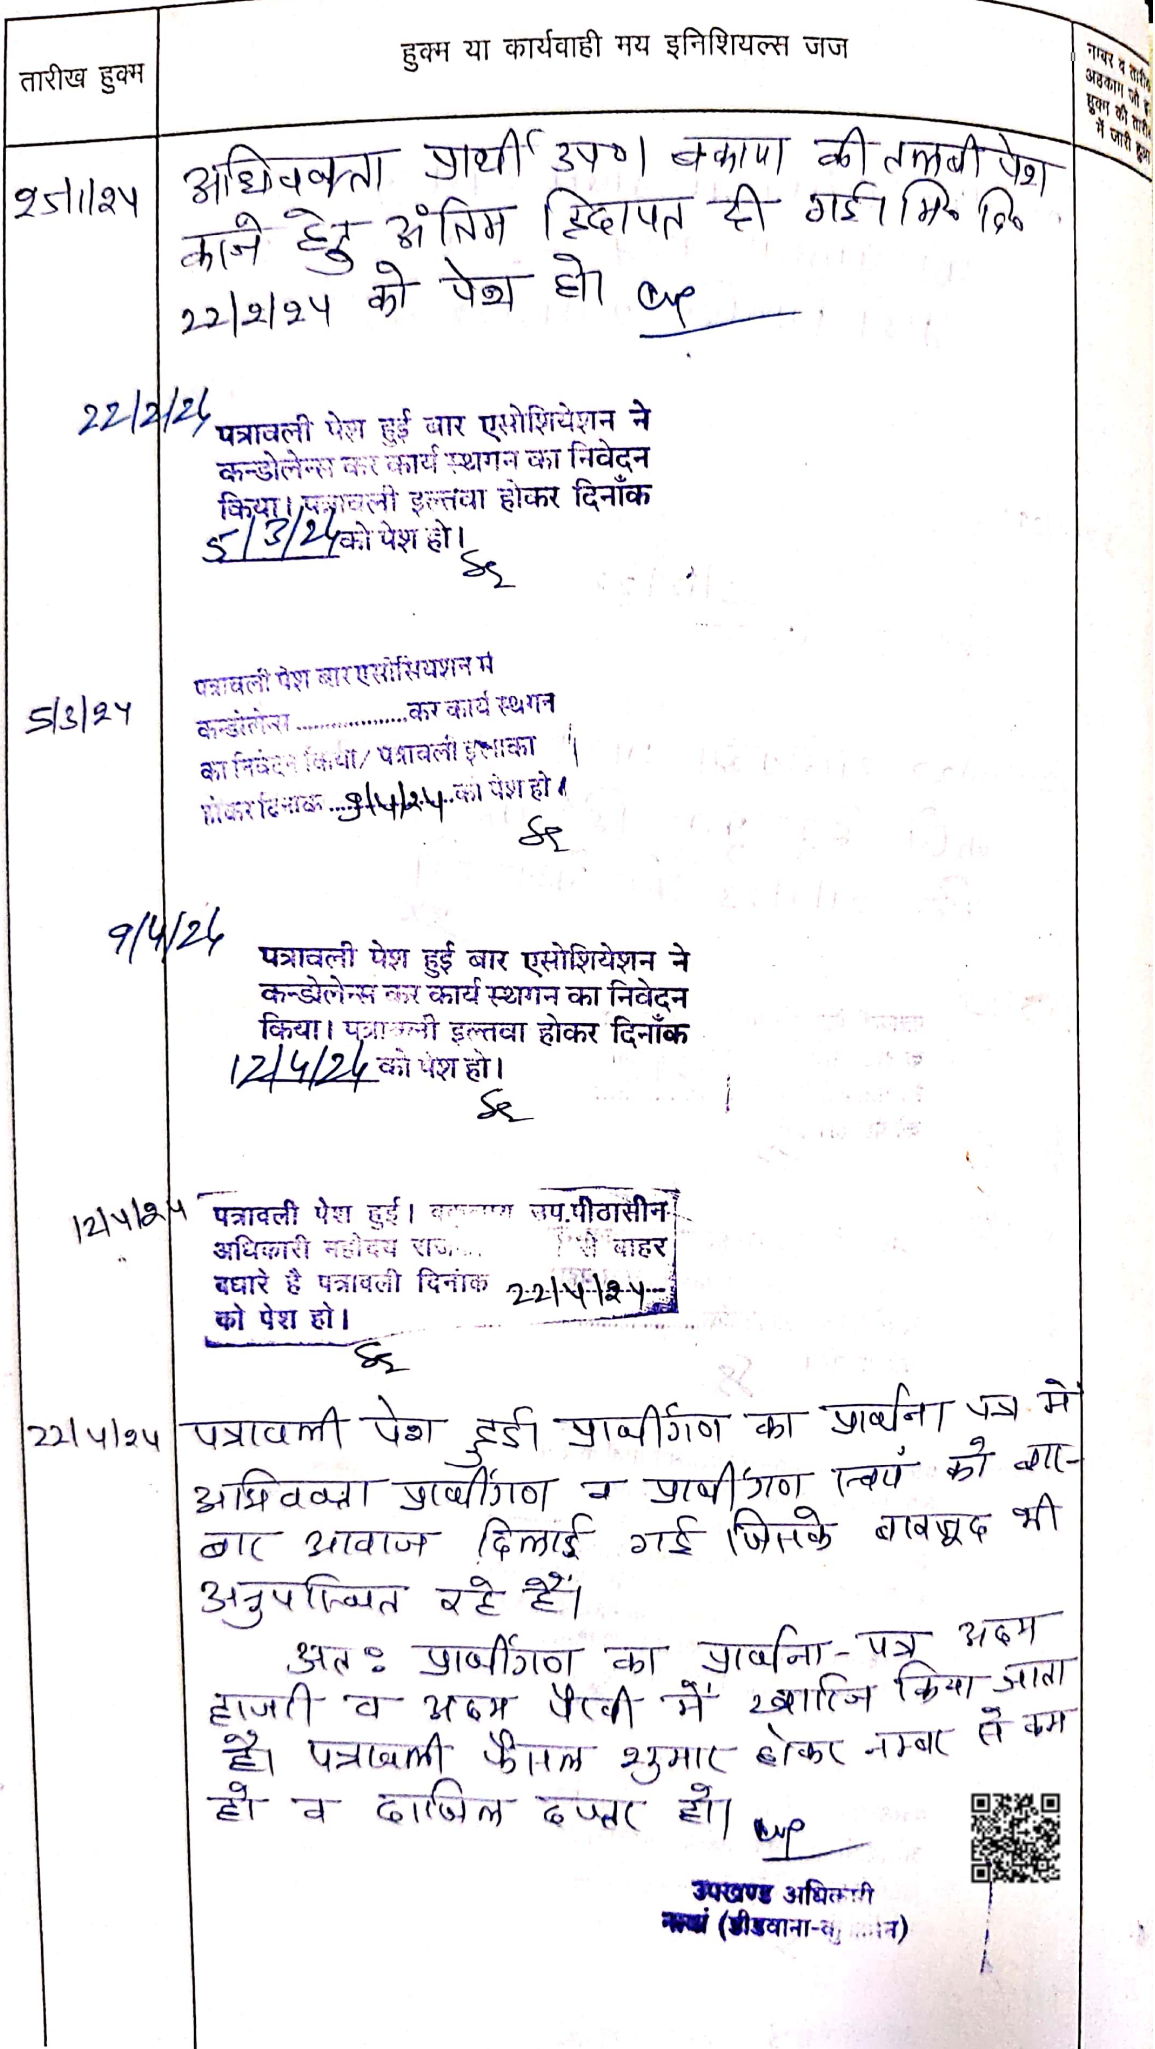 तारीख हुक्म
हुक्म या कार्यवाही मय इनिशियल्स जज
नम्बर व तारीख
अहकाम जो इस
हुक्म की तारीख
में जारी हुआ
25/1/24
अधिवक्ता प्रार्थी उप० । बकाया की तलबी पेश
करने हेतु अंतिम हिदायत दी गई। मि० दि०
22/2/24 को पेश हो।
22/2/24
पत्रावली पेश हुई बार एसोशियेशन ने
कन्डोलेन्स कर कार्य स्थगन का निवेदन
किया। पत्रावली इल्तवा होकर दिनाँक
5/3/24 को पेश हो।
5/3/24
पत्रावली पेश बार एसोसियशन में
कन्डोलेन्स ................... कर कार्य स्थगन
का निवेदन किया/ पत्रावली इलाका
होकर दिनांक ....9/4/24...को पेश हो।
9/4/24
पत्रावली पेश हुई बार एसोशियेशन ने
कन्डोलेन्स कर कार्य स्थगन का निवेदन
किया। पत्रावली इल्तवा होकर दिनाँक
12/4/24 को पेश हो।
12/4/24
पत्रावली पेश हुई। उप. पीठासीन
अधिकारी महोदय राज से बाहर
पधारे है पत्रावली दिनांक 22/4/24
को पेश हो।
22/4/24
पत्रावली पेश हुई। प्रार्थीगण का प्रार्थना पत्र में
अधिवक्ता प्रार्थीगण व प्रार्थीगण स्वयं को बार-
बार आवाज दिलाई गई जिसके बावजूद भी
अनुपस्थित रहे हैं।
अतः प्रार्थीगण का प्रार्थना-पत्र अदम
हाजरी व अदम पैरवी में खारिज किया जाता
है। पत्रावली फैसल शुमार होकर नम्बर से कम
हो व दाखिल दफ्तर हो।
उपखण्ड अधिकारी
नावां (डीडवाना-कुचामन)